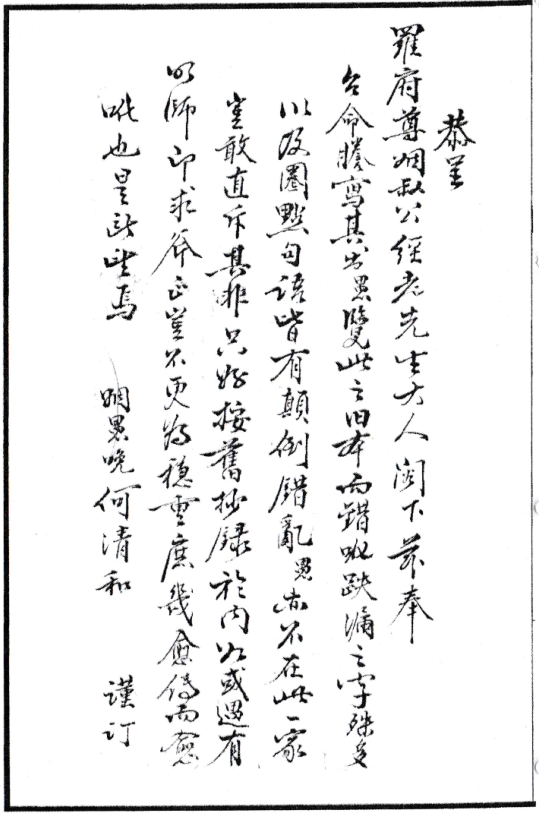 恭呈
羅府尊姻叔公經老先生大人閣下茲奉
台命謄寫其出愚覽此之旧本而錯訛跌漏之字殊多
以及圈點句語皆有顛倒錯亂愚亦不在此一家
豈敢直斥其非只好按舊抄録於內如或遇有
明師即求斧正豈不更為穩重庶幾愈傳而愈
吡也是所望焉
姻愚晚何清和
謹订